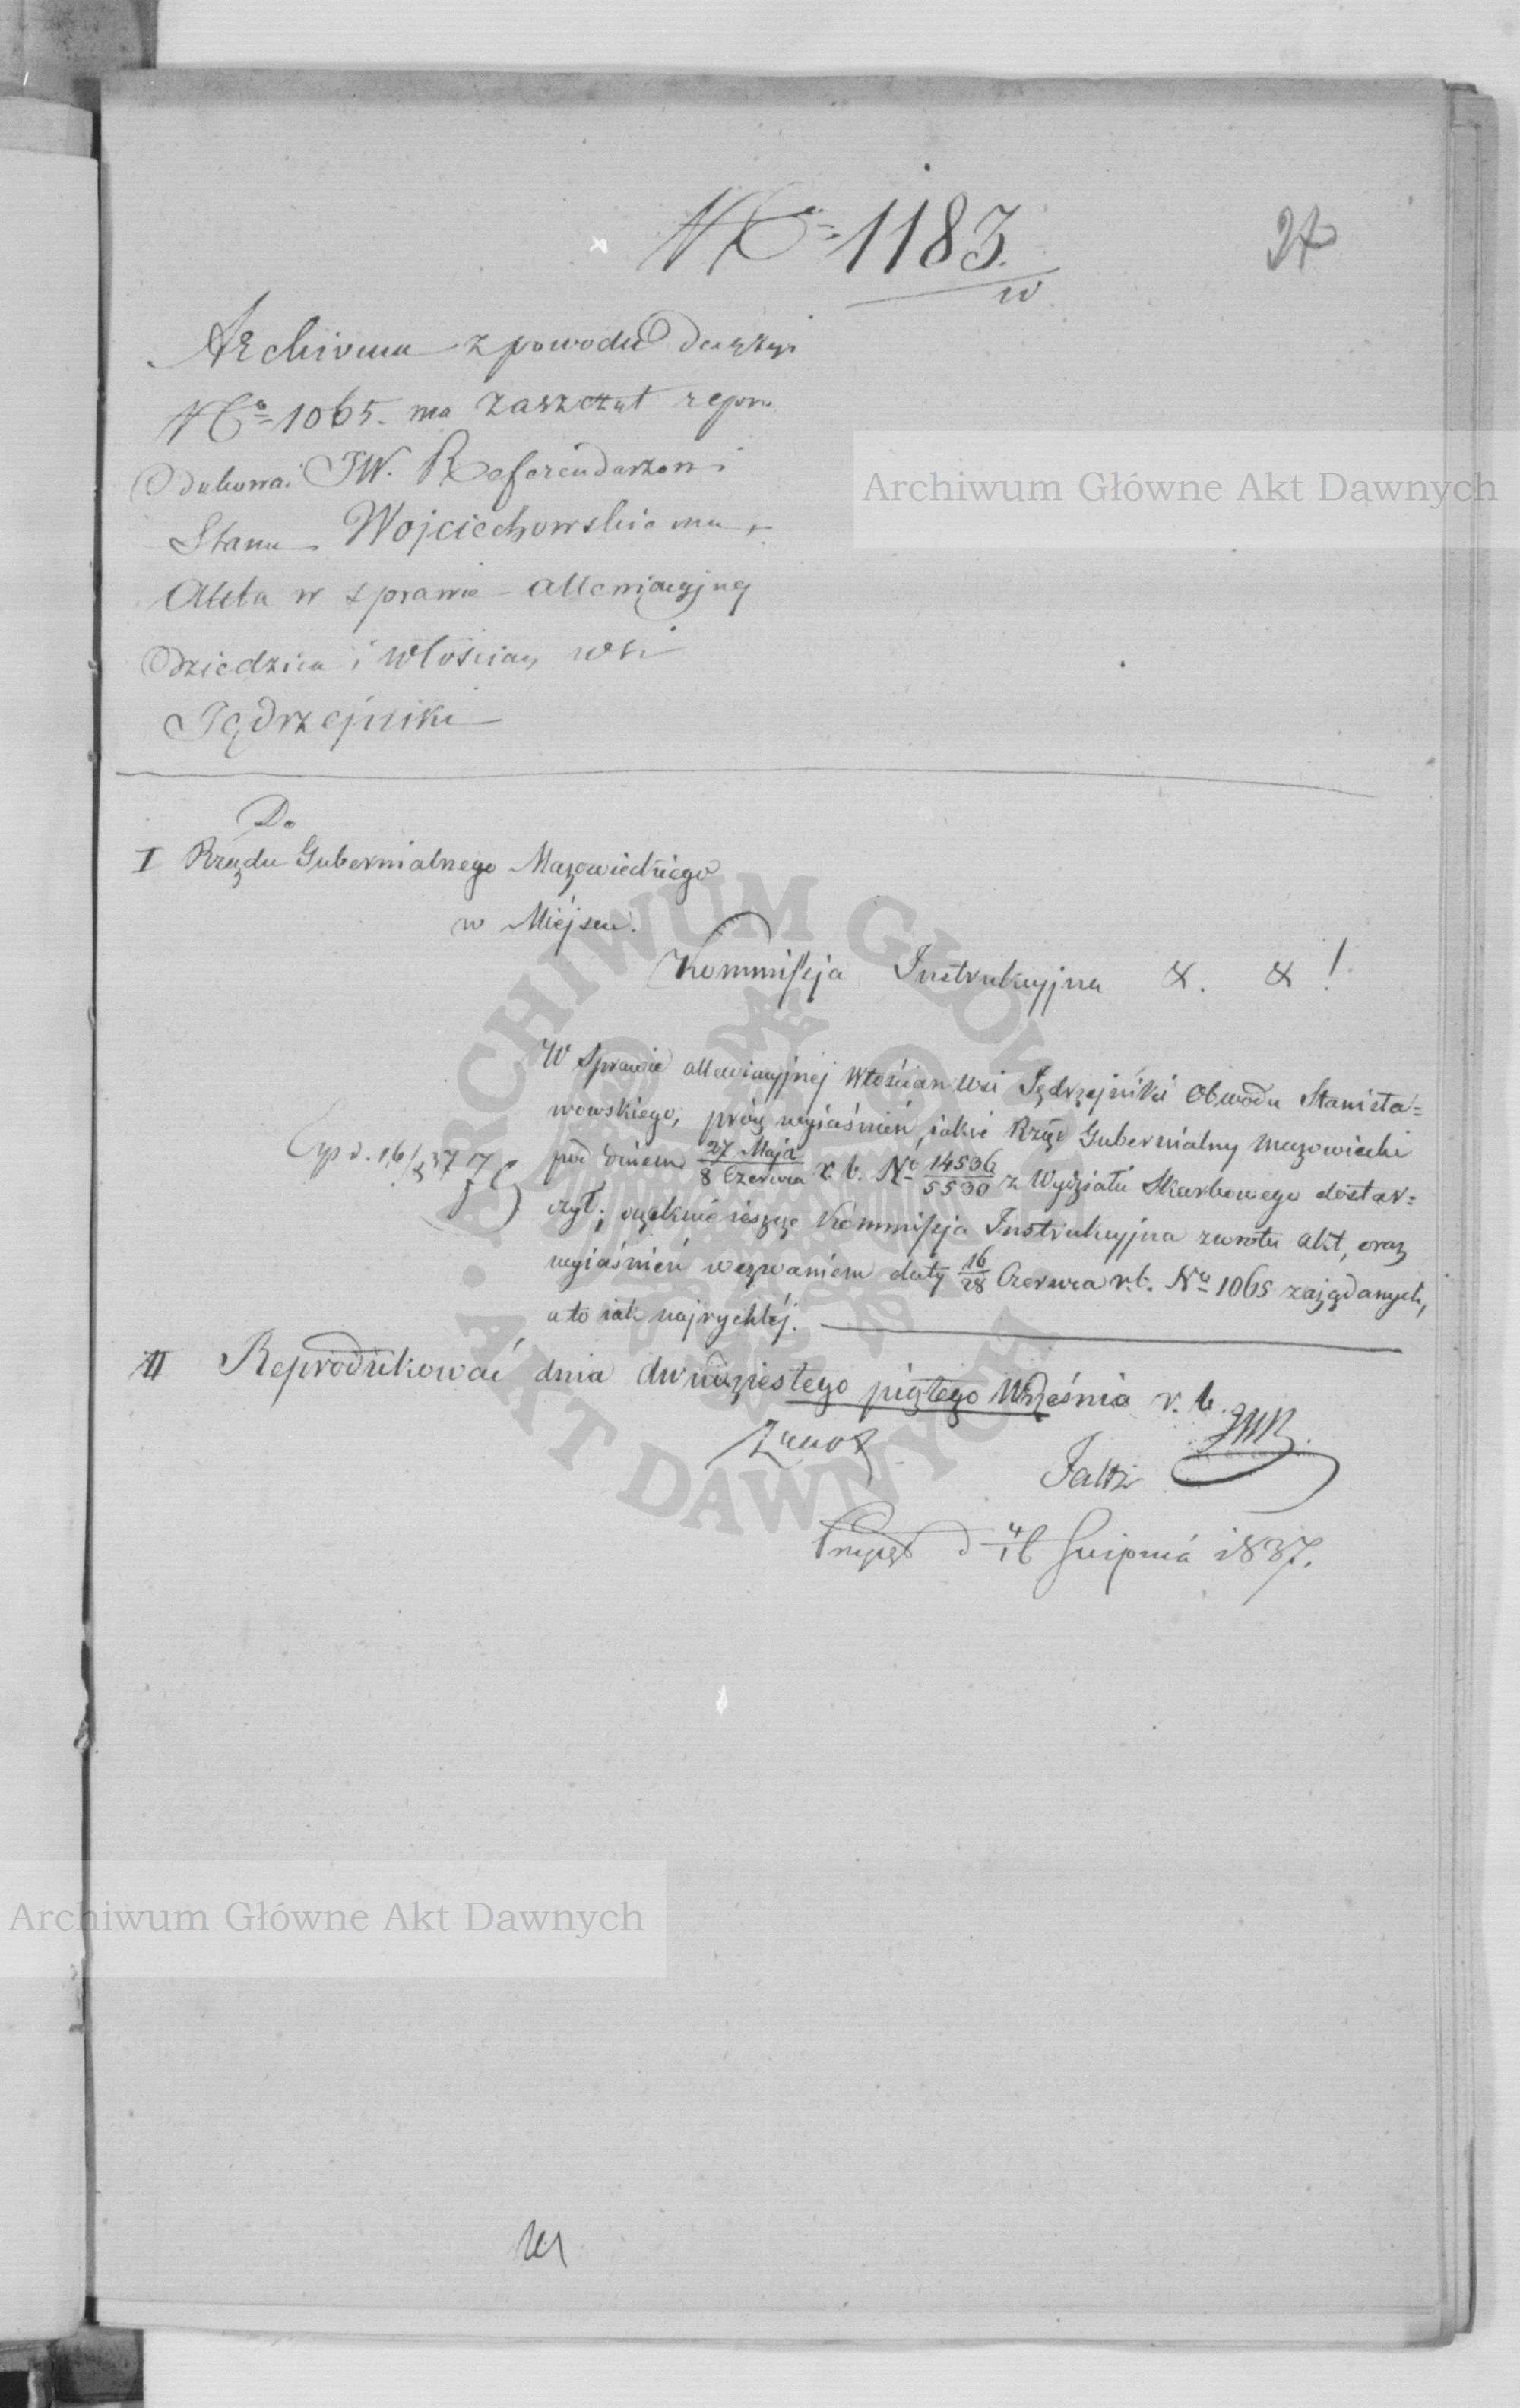 No 1183.
w
27
Archiwum z powodu decyzyi
No 1065. ma zaszczyt repro
dukować JW. Referendarzowi
Stanu Wojciechowskiemu
Akta w sprawie allewiacyjnej
Dziedzica i Włościan wsi
Jędrzejniki
Do
I Rządu Gubernialnego Mazowieckiego
w Miejscu.
Kommissja Instrukcyjna &. &!
W sprawie allewiacyjnej Włościan Wsi Jędrzejniki Obwodu Stanisła=
wowskiego, prócz wyiaśnień, iakie Rząd Gubernialny Mazowiecki
pod dniem 27 Maja / 8 Czerwca r. b. No 14536 / 5530 z Wydziału Skarbowego dostar=
czył; oczekuie ieszcze Kommissja Instrukcyjna zwrotu akt, oraz
wyiaśnień wezwaniem daty 16/28 Czerwca r. b. No 1065 zażądanych,
a to iak najrychléj.
Exp d. 16/8 37
II Reprodukować dnia dwudziestego piątego Września r. b.
d 4/16 Sierpnia 1837.
Archiwum Główne Akt Dawnych
ARCHIWUM GŁÓWNE
AKT DAWNYCH
Archiwum Główne Akt Dawnych